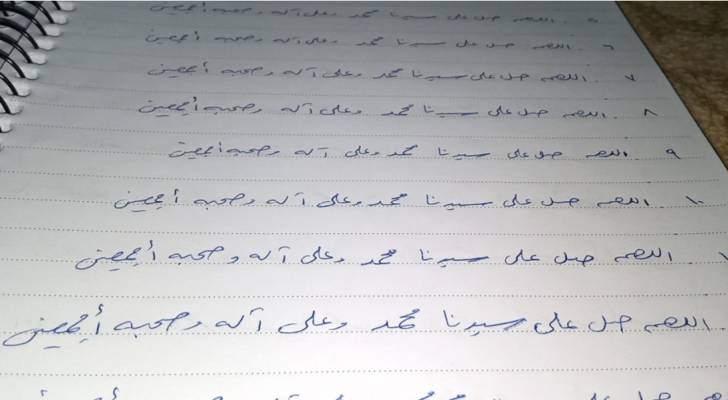 ٥. اللهم صل على سيدنا محمد وعلى آله وصحبه أجمعين
٦. اللهم صل على سيدنا محمد وعلى آله وصحبه أجمعين
٧. اللهم صل على سيدنا محمد وعلى آله وصحبه أجمعين
٨. اللهم صل على سيدنا محمد وعلى آله وصحبه أجمعين
٩. اللهم صل على سيدنا محمد وعلى آله وصحبه أجمعين
١٠. اللهم صل على سيدنا محمد وعلى آله وصحبه أجمعين
اللهم صل على سيدنا محمد وعلى آله وصحبه أجمعين
اللهم صل على سيدنا محمد وعلى آله وصحبه أجمعين